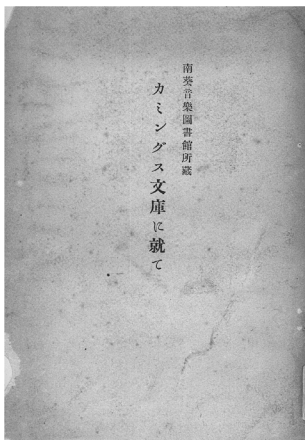 南葵音樂圖書館所藏
カミングス文庫に就て